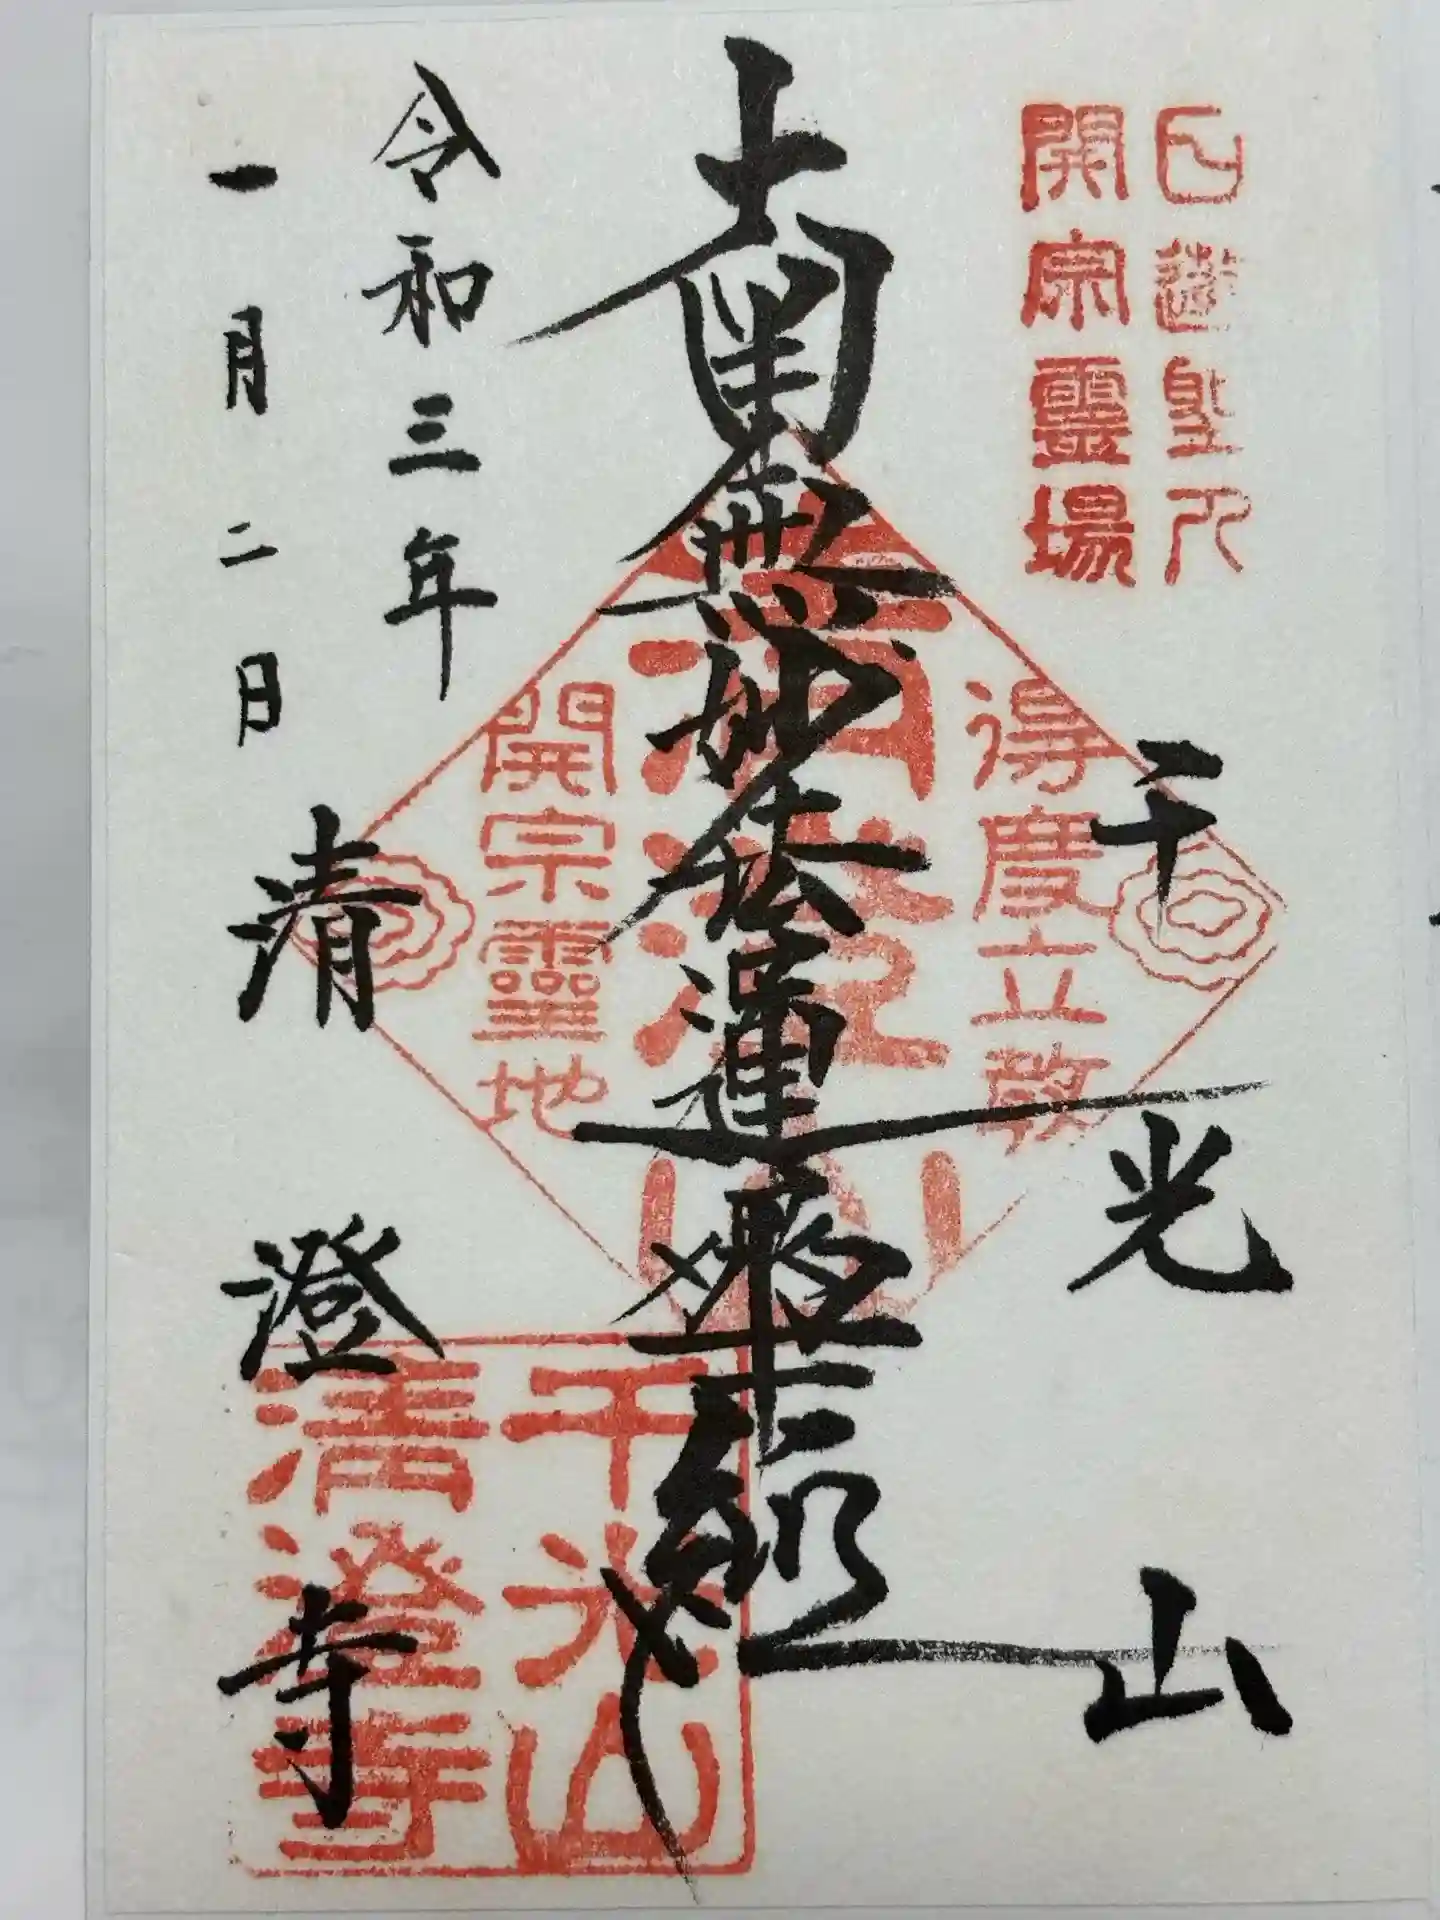 日蓮聖人
開宗靈場
千光山
得度立教
南無妙法蓮華経
清澄山
開宗靈地
令和三年
一月二日
清澄寺
千光山
清澄寺